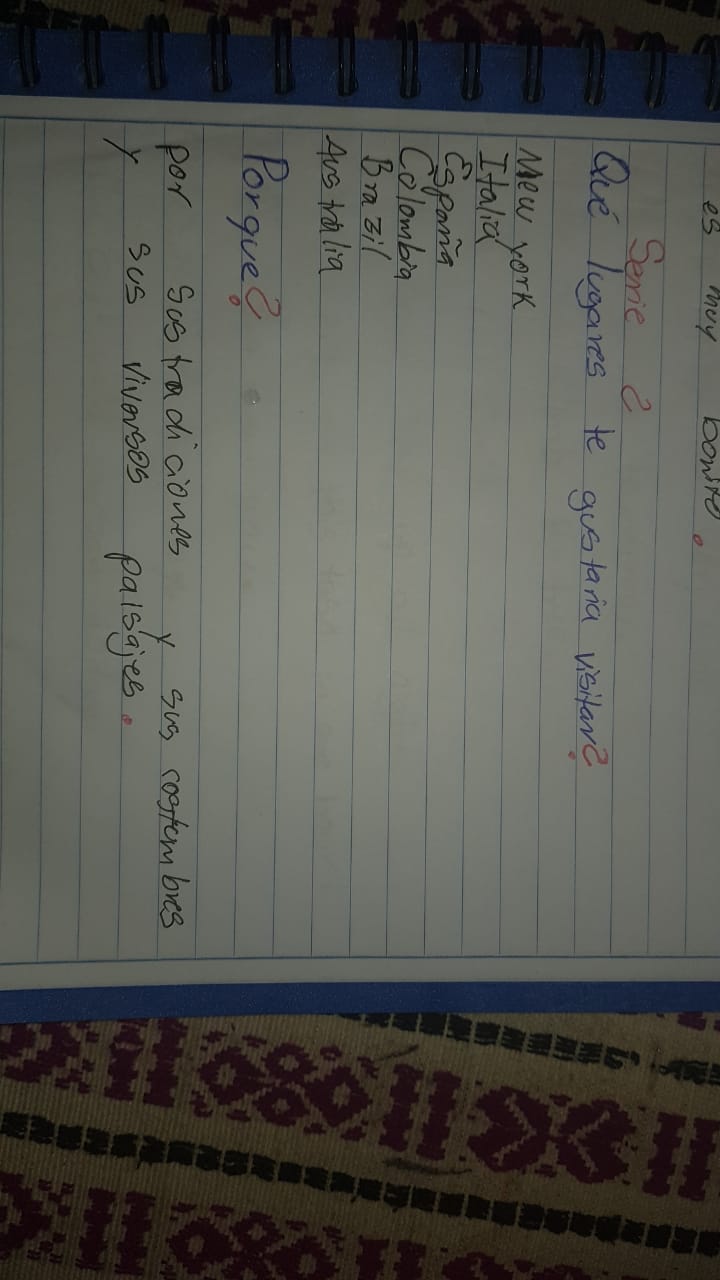 es muy bonito.
Serie 2
Qué lugares te gustaria visitar?
New york
Italia
España
Colombia
Brazil
Australia
Porque?
por sus tradiciones y sus costembres
y sus viversos paisajes.